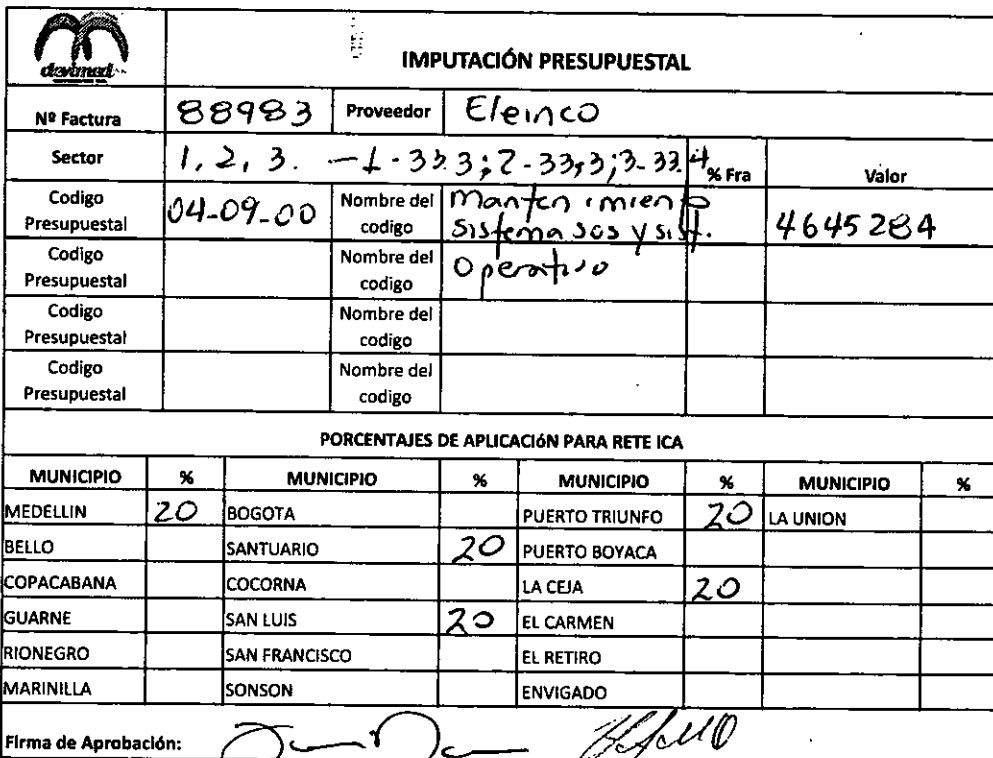 devimed
IMPUTACIÓN PRESUPUESTAL
Nº Factura 88983 Proveedor Eleinco
Sector 1, 2, 3. - 1 - 33.3; 2 - 33,3; 3 - 33.4 % Fra Valor
Codigo Presupuestal 04-09-00 Nombre del codigo Mantenimiento sistema sos y sist. 4645284
Codigo Presupuestal Nombre del codigo Operativo
Codigo Presupuestal Nombre del codigo
Codigo Presupuestal Nombre del codigo
PORCENTAJES DE APLICACIÓN PARA RETE ICA
MUNICIPIO % MUNICIPIO % MUNICIPIO % MUNICIPIO %
MEDELLIN 20 BOGOTA PUERTO TRIUNFO 20 LA UNION
BELLO SANTUARIO 20 PUERTO BOYACA
COPACABANA COCORNA LA CEJA 20
GUARNE SAN LUIS 20 EL CARMEN
RIONEGRO SAN FRANCISCO EL RETIRO
MARINILLA SONSON ENVIGADO
Firma de Aprobación: